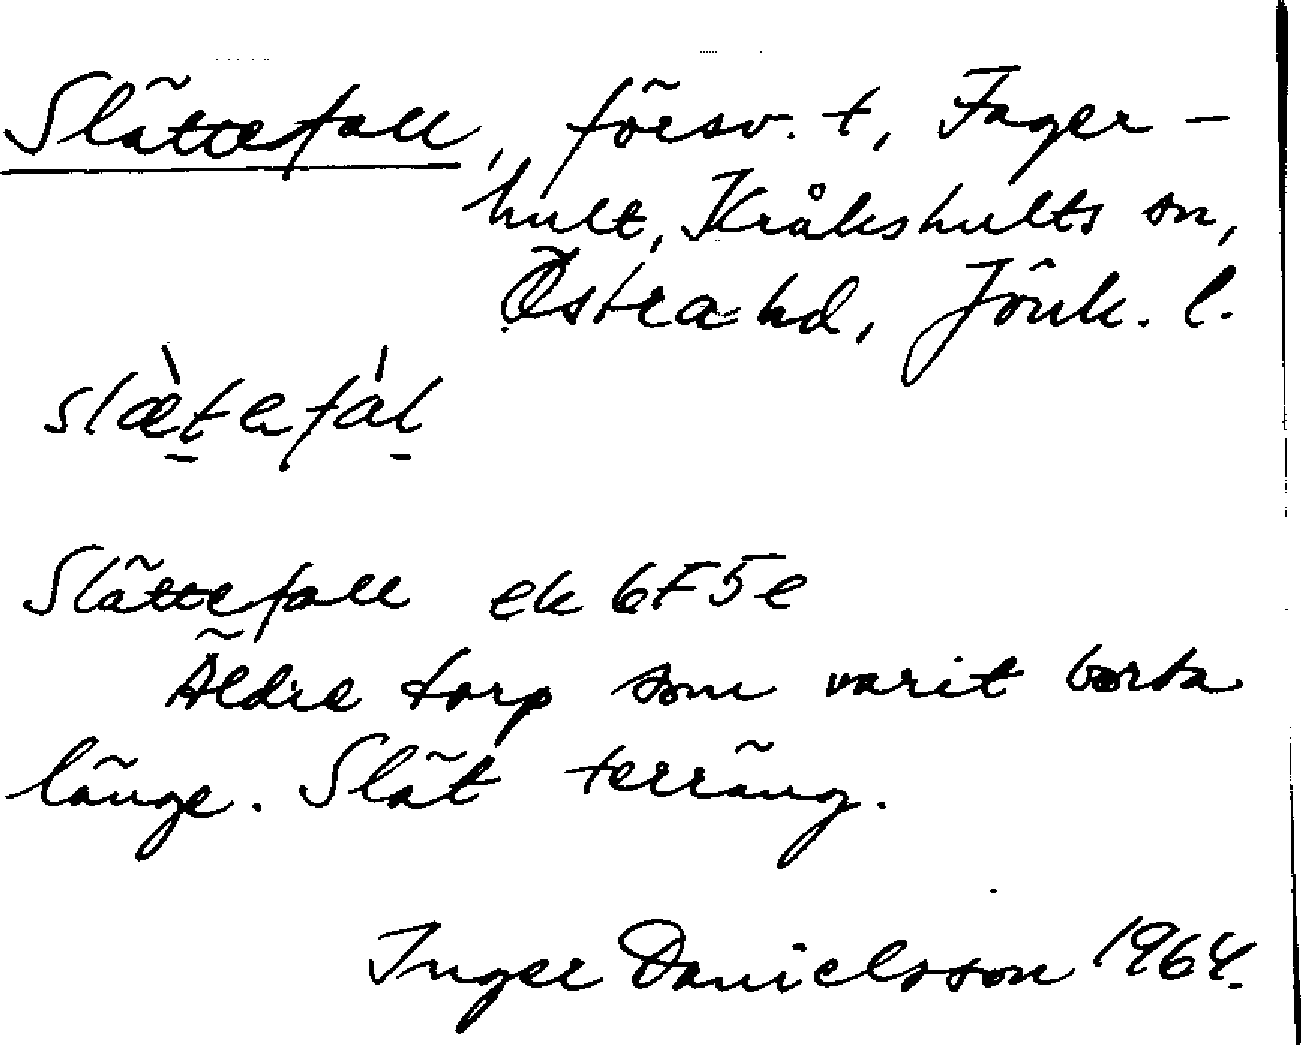 Slättefall, försv. t, Fager-
hult, Kråkshults sn,
Östra hd, Jönk. l.
slæ̀t̠efál̠
Slättefall ek 6F5e
Äldre torp som varit borta
länge. Slät terräng.
Inger Danielsson 1964.